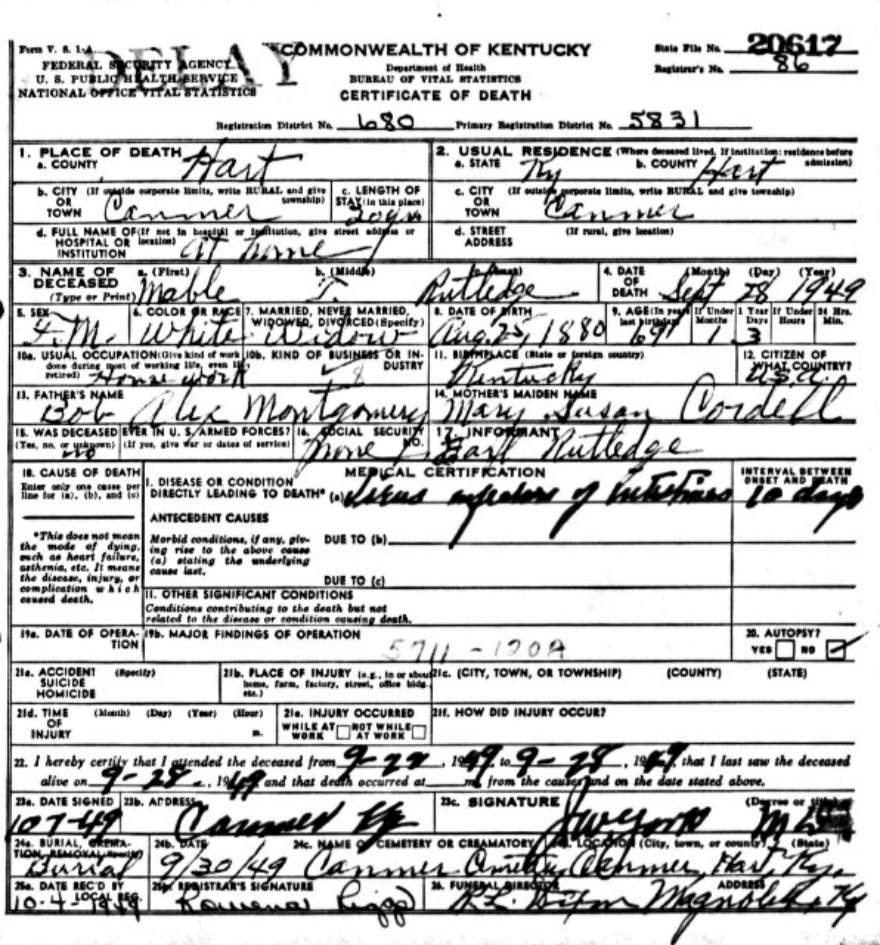 Form V. S. 1-A
DELAY
COMMONWEALTH OF KENTUCKY
State File No. 20617
FEDERAL SECURITY AGENCY
Department of Health
Registrar's No. 86
U. S. PUBLIC HEALTH SERVICE
BUREAU OF VITAL STATISTICS
NATIONAL OFFICE VITAL STATISTICS
CERTIFICATE OF DEATH
Registration District No. 680 Primary Registration District No. 5831
1. PLACE OF DEATH
a. COUNTY Hart
2. USUAL RESIDENCE (Where deceased lived. If institution: residence before admission)
a. STATE Ky b. COUNTY Hart
b. CITY OR TOWN (If outside corporate limits, write RURAL and give township) Canmer
c. LENGTH OF STAY (in this place)
c. CITY OR TOWN (If outside corporate limits, write RURAL and give township) Canmer
d. FULL NAME OF HOSPITAL OR INSTITUTION (If not in hospital or institution, give street address or location) at home
d. STREET ADDRESS (If rural, give location)
3. NAME OF DECEASED (Type or Print)
a. (First) Mable b. (Middle) c. (Last) Rutledge
4. DATE OF DEATH (Month) (Day) (Year) Sept 28 1949
5. SEX F.M.
6. COLOR OR RACE White
7. MARRIED, NEVER MARRIED, WIDOWED, DIVORCED (Specify) Widow
8. DATE OF BIRTH Aug. 25, 1880
9. AGE (In years last birthday) 69 If Under 1 Year Months 1 Days 3 If Under 24 Hrs. Hours Min.
10a. USUAL OCCUPATION (Give kind of work done during most of working life, even if retired) House work
10b. KIND OF BUSINESS OR INDUSTRY
11. BIRTHPLACE (State or foreign country) Kentucky
12. CITIZEN OF WHAT COUNTRY? U.S.A.
13. FATHER'S NAME Bob Alex Montgomery
14. MOTHER'S MAIDEN NAME Mary Susan Cordell
15. WAS DECEASED EVER IN U. S. ARMED FORCES?
(Yes, no, or unknown) (If yes, give war or dates of service) no
16. SOCIAL SECURITY NO. none
17. INFORMANT Earl Rutledge
18. CAUSE OF DEATH
Enter only one cause per line for (a), (b), and (c)
MEDICAL CERTIFICATION
INTERVAL BETWEEN ONSET AND DEATH
I. DISEASE OR CONDITION DIRECTLY LEADING TO DEATH* (a) Virus infection of Intestines 10 days
*This does not mean the mode of dying, such as heart failure, asthenia, etc. It means the disease, injury, or complication which caused death.
ANTECEDENT CAUSES
Morbid conditions, if any, giving rise to the above cause (a) stating the underlying cause last.
DUE TO (b)
DUE TO (c)
II. OTHER SIGNIFICANT CONDITIONS
Conditions contributing to the death but not related to the disease or condition causing death.
19a. DATE OF OPERATION
19b. MAJOR FINDINGS OF OPERATION
5711-120A
20. AUTOPSY?
YES NO
21a. ACCIDENT SUICIDE HOMICIDE (Specify)
21b. PLACE OF INJURY (e.g., in or about home, farm, factory, street, office bldg., etc.)
21c. (CITY, TOWN, OR TOWNSHIP) (COUNTY) (STATE)
21d. TIME OF INJURY (Month) (Day) (Year) (Hour) m.
21e. INJURY OCCURRED
WHILE AT WORK NOT WHILE AT WORK
21f. HOW DID INJURY OCCUR?
22. I hereby certify that I attended the deceased from 9-22, 1949, to 9-28, 1949, that I last saw the deceased
alive on 9-28, 1949, and that death occurred at m., from the causes and on the date stated above.
23a. DATE SIGNED 10-7-49
23b. ADDRESS Canmer Ky
23c. SIGNATURE (Degree or title) M D
24a. BURIAL, CREMATION, REMOVAL (Specify) Burial
24b. DATE 9/30/49
24c. NAME OF CEMETERY OR CREMATORY Canmer
24d. LOCATION (City, town, or county) (State) Canmer, Hart, Ky.
25a. DATE REC'D BY LOCAL REG. 10-4-1949
25b. REGISTRAR'S SIGNATURE Rowena
26. FUNERAL DIRECTOR ADDRESS Magnolia, Ky